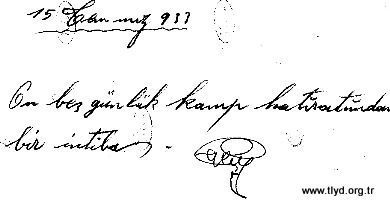 15 Temmuz 933
On beş günlük kamp hatıratından
bir intiba .
www.tlyd.org.tr